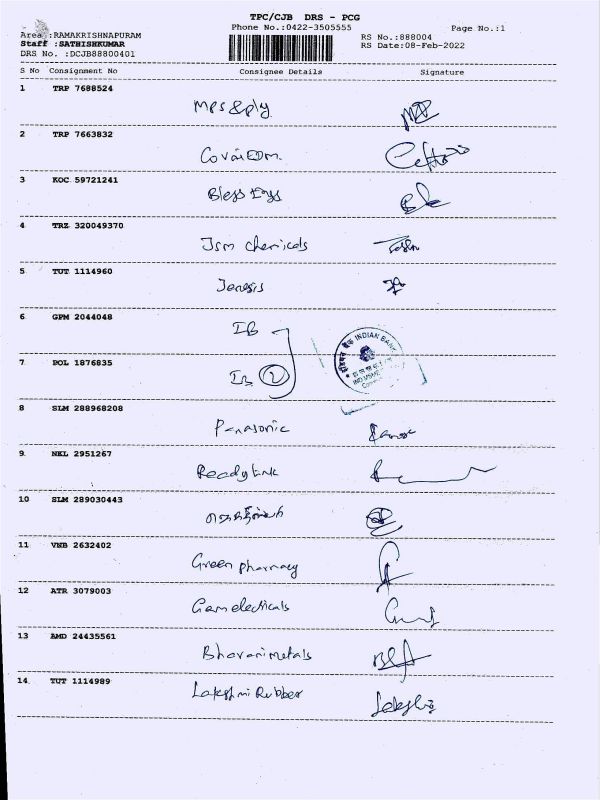 TPC/CJB DRS - PCG
Phone No.:0422-3505555
Page No.:1
Area :RAMAKRISHNAPURAM
RS No.:888004
Staff :SATHISHKUMAR
RS Date:08-Feb-2022
DRS No. :DCJB88800401
S No Consignment No Consignee Details Signature
1 TRP 7688524
Mps & ply
2 TRP 7663832
Covai EDM.
3 KOC 59721241
Bless Engs
4 TRZ 320049370
Jsm chemicals
5 TUT 1114960
Jenesis
6 GPM 2044048
IB
INDIAN BANK
7 POL 1876835
IB 2
8 SLM 288968208
Panasonic
9 NKL 2951267
Ready Link
10 SLM 289030443
11 VNB 2632402
Green pharmacy
12 ATR 3079003
Gem electicals
13 AMD 24435561
Bhavani metals
14 TUT 1114989
Lakshmi Rubber